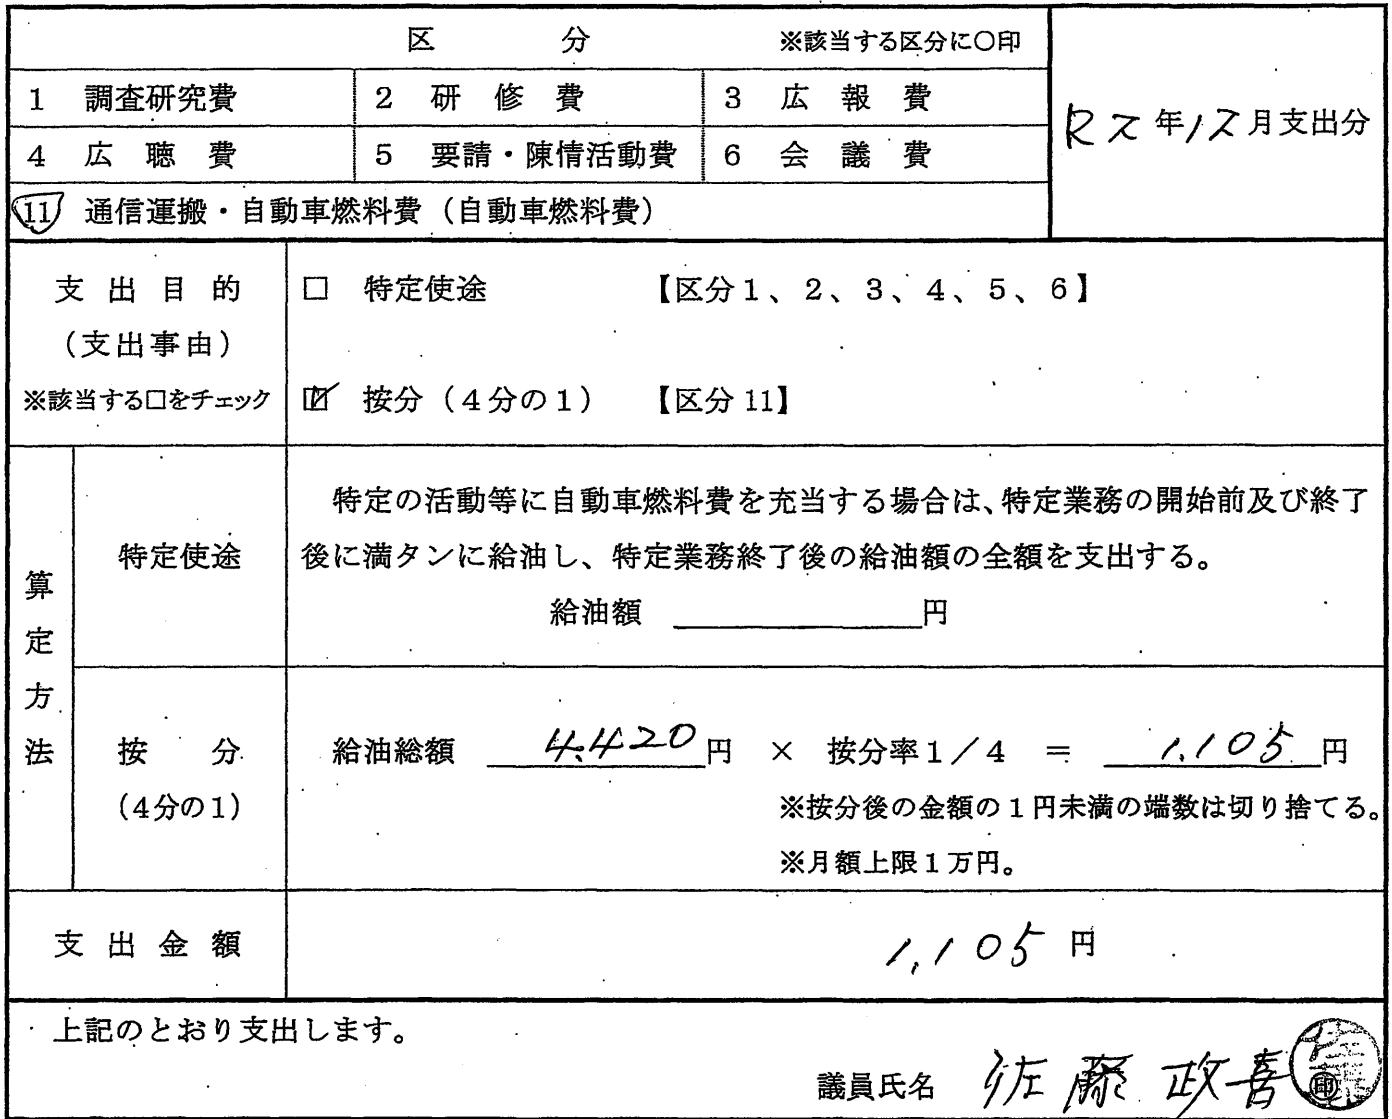 区　分　※該当する区分に○印
1 調査研究費　2 研修費　3 広報費
R2年12月支出分
4 広聴費　5 要請・陳情活動費　6 会議費
11 通信運搬・自動車燃料費（自動車燃料費）
支出目的
（支出事由）
※該当する□をチェック
□ 特定使途　【区分1、2、3、4、5、6】
☑ 按分（4分の1）　【区分11】
算定方法
特定使途
特定の活動等に自動車燃料費を充当する場合は、特定業務の開始前及び終了
後に満タンに給油し、特定業務終了後の給油額の全額を支出する。
給油額　円
按分
（4分の1）
給油総額 4.420円 × 按分率1／4 ＝ 1.105円
※按分後の金額の1円未満の端数は切り捨てる。
※月額上限1万円。
支出金額　1,105円
上記のとおり支出します。
議員氏名 佐藤政喜 ㊞